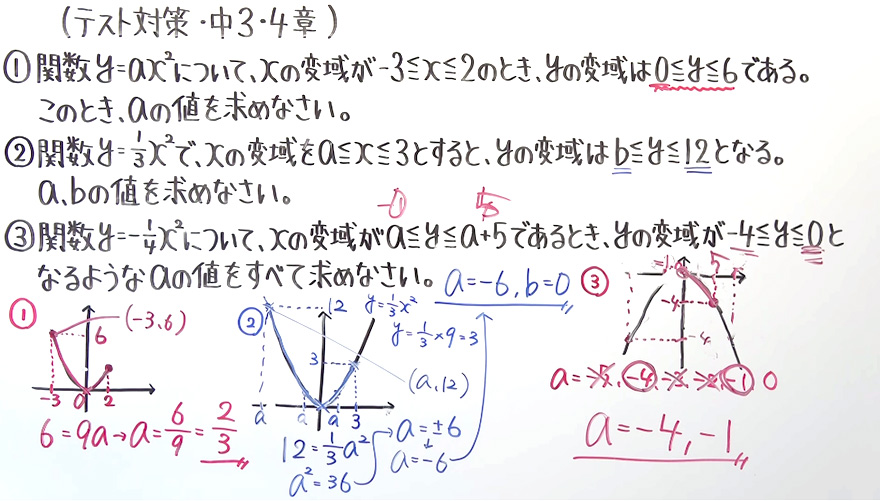 (テスト対策・中3・4章)
①関数y=ax²について、xの変域が-3≦x≦2のとき、yの変域は0≦y≦6である。
このとき、aの値を求めなさい。
②関数y=1/3x²で、xの変域をa≦x≦3とすると、yの変域はb≦y≦12となる。
a,bの値を求めなさい。
③関数y=-1/4x²について、xの変域がa≦y≦a+5であるとき、yの変域が-4≦y≦0と
なるようなaの値をすべて求めなさい。
a=-6,b=0
①
(-3,6)
6
-3 0 2
6=9a→a=6/9=2/3
②
12
y=1/3x²
y=1/3×9=3
3
(a,12)
a a a 3
12=1/3a²
a²=36
a=±6
a=-6
③
5
-4
-4
a=-5,-4,-3,-2,-1 0
a=-4,-1